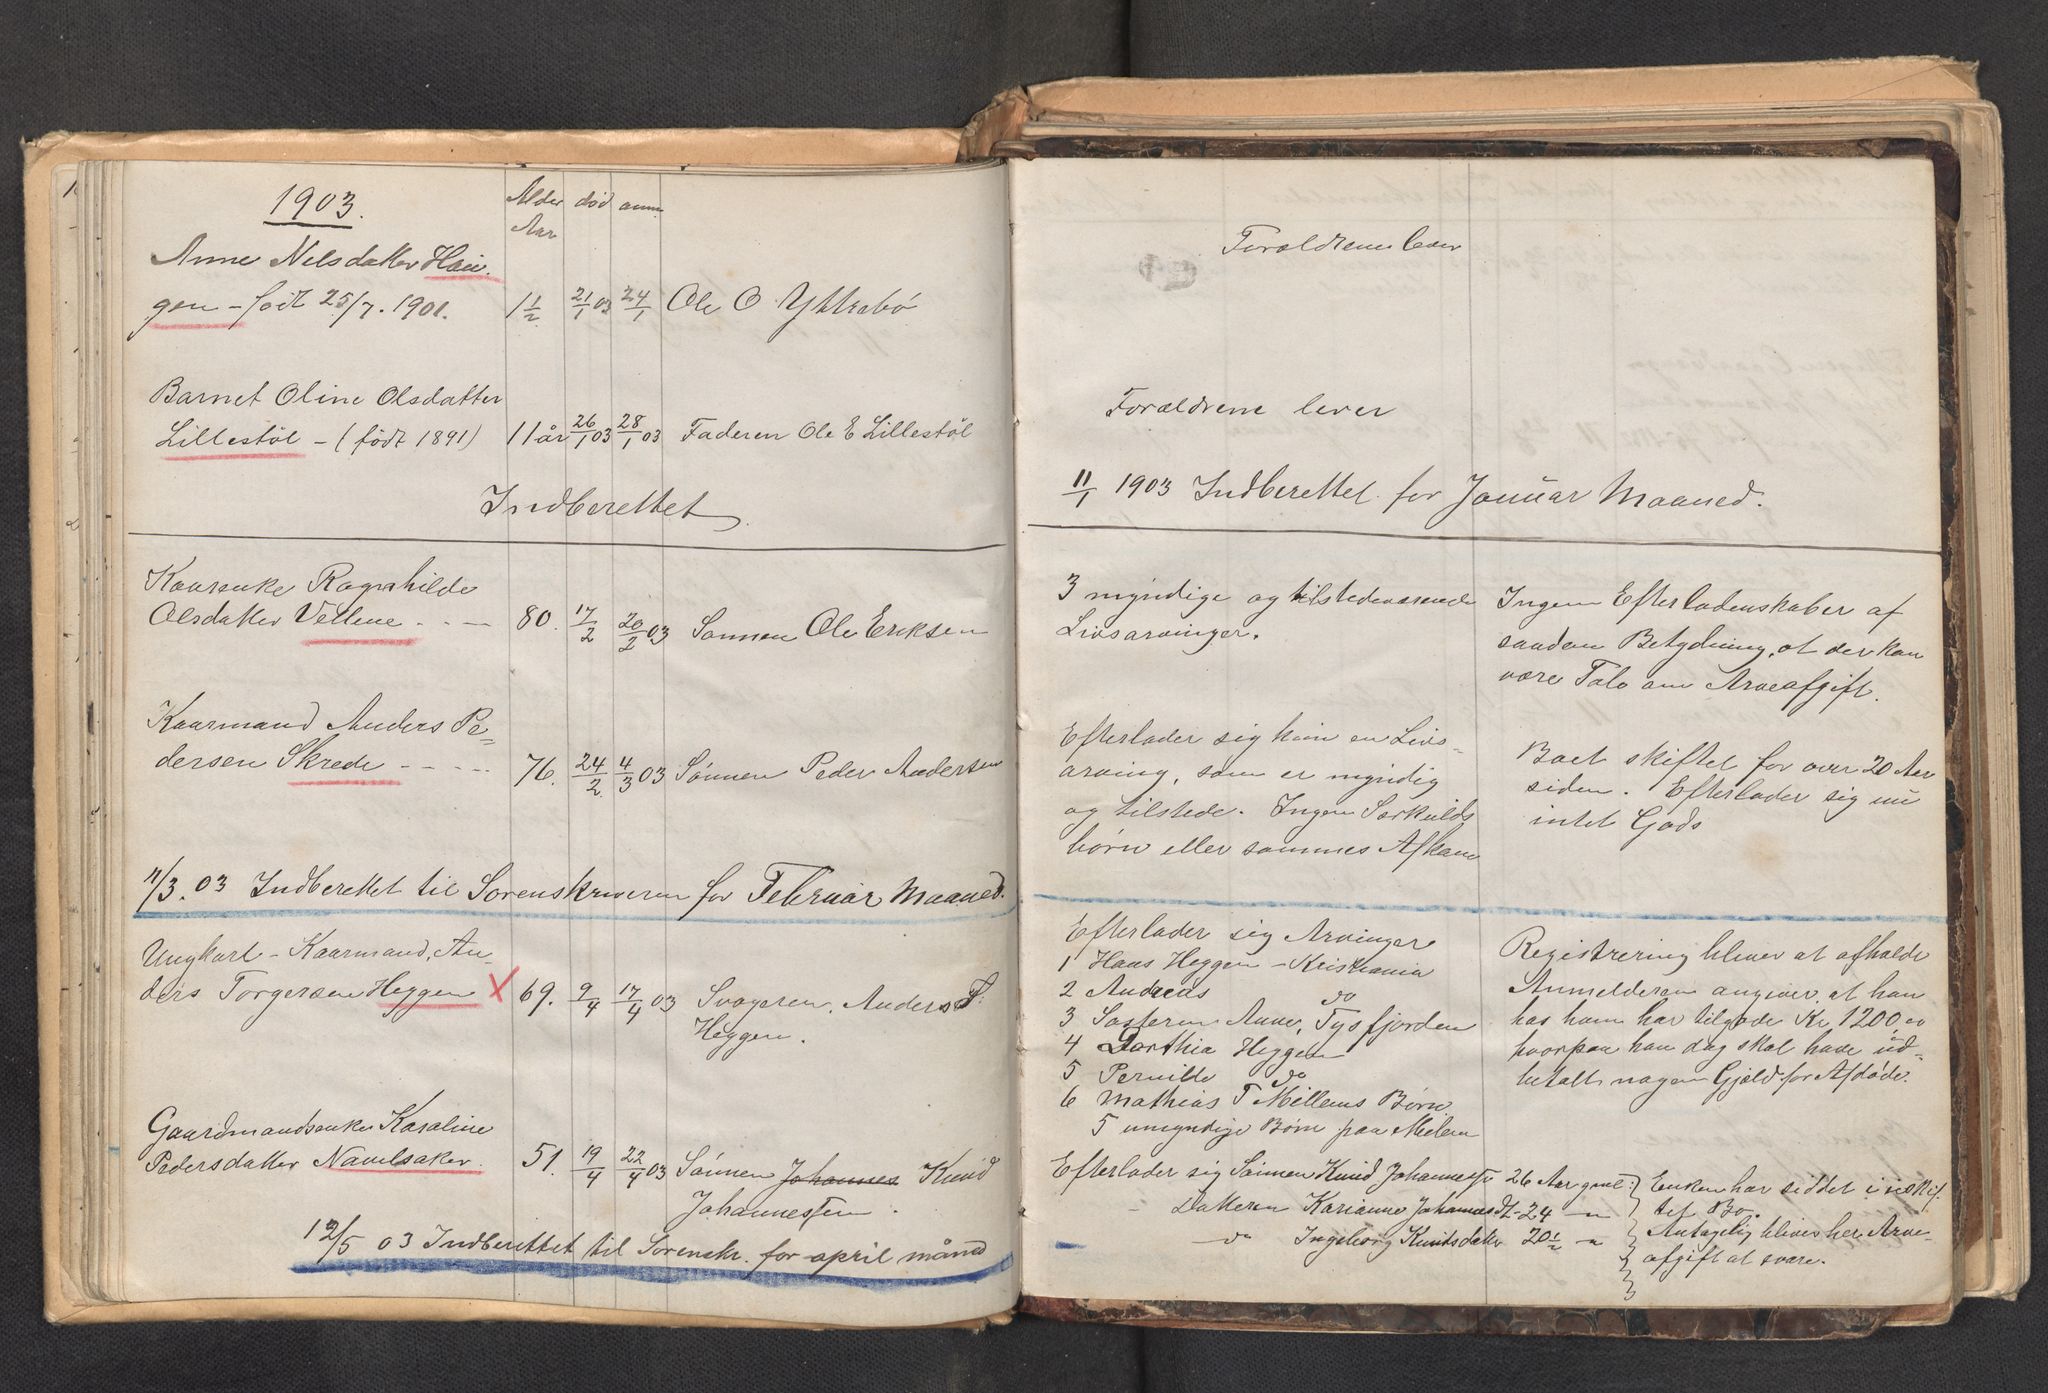 1903.
Alder død anm.
Aar
Anne Nilsdatter Hau-
gen - født 25/7. 1901. 1 1/2 21/1 03 24/1 Ole O Yttrebø
Barnet Oline Olsdatter
Lillestöl - (født 1891) 11 år 26/1 03 28/1 03 Faderen Ole E Lillestöl
Indberettet
Kaarenke Ragnhilde
Olsdatter Vellene - - - 80. 17/2 20/2 03 Sønnen Ole Eriksen
Kaarmand Anders Pe=
dersen Skrede - - - - - 76. 24/2. 4/3 03 Sønnen Peder Andersen
11/3. 03 Indberettet til Sorenskriveren for Februar Maaned.
Ungkarl - Kaarmand, An-
ders Torgersen Heggen X 69. 9/4 17/4 03 Svogeren, Anders T.
Heggen.
Gaardmandsenke Karaline
Pedersdatter Navelsaker. 51. 19/4 22/4 03 Sønnen Johannes Knud
Johannessen.
12/5 03 Indberettet til Sorenskr. for april måned
Forældrene lever
Forældrene lever
11/1 1903 Indberettet for Januar Maaned.
3 myndige og tilstedeværende
Livsarvinger.
Ingen Efterladenskaber af
saadan Betydning, at der kan
være Tale om Arveafgift.
Efterlader sig kun en Livs-
arving, som er myndig
og tilstede. Ingen Særkulds
börn eller sammes Afkom
Boet skiftet for over 20 Aar
siden. Efterlader sig nu
intet Gods
Efterlader sig Arvinger
1 Hans Heggen - Kristiania
2 Andreas do
3 Søsteren Anne, Tysfjorden
4 Dorthia Heggen
5 Pernille do
6 Mathias T Mellems Børn
5 umyndige Børn paa Melem
Registrering bliver at afholde
Anmelderen angiver, at han
hos ham har tilgode Kr. 1200 00
hvorpaa han dog skal have ud-
betalt nogen Gjæld for Afdöde.
Efterlader sig Sønnen Knud Johannessen 26 Aar gml.
Datteren Karianne Johannesd. - 24 - "
do Ingeborg Knutsdatter 20 1/2 - "
Enken har siddet i uskif-
tet Bo.
Antagelig bliver her Arve-
afgift at svare.